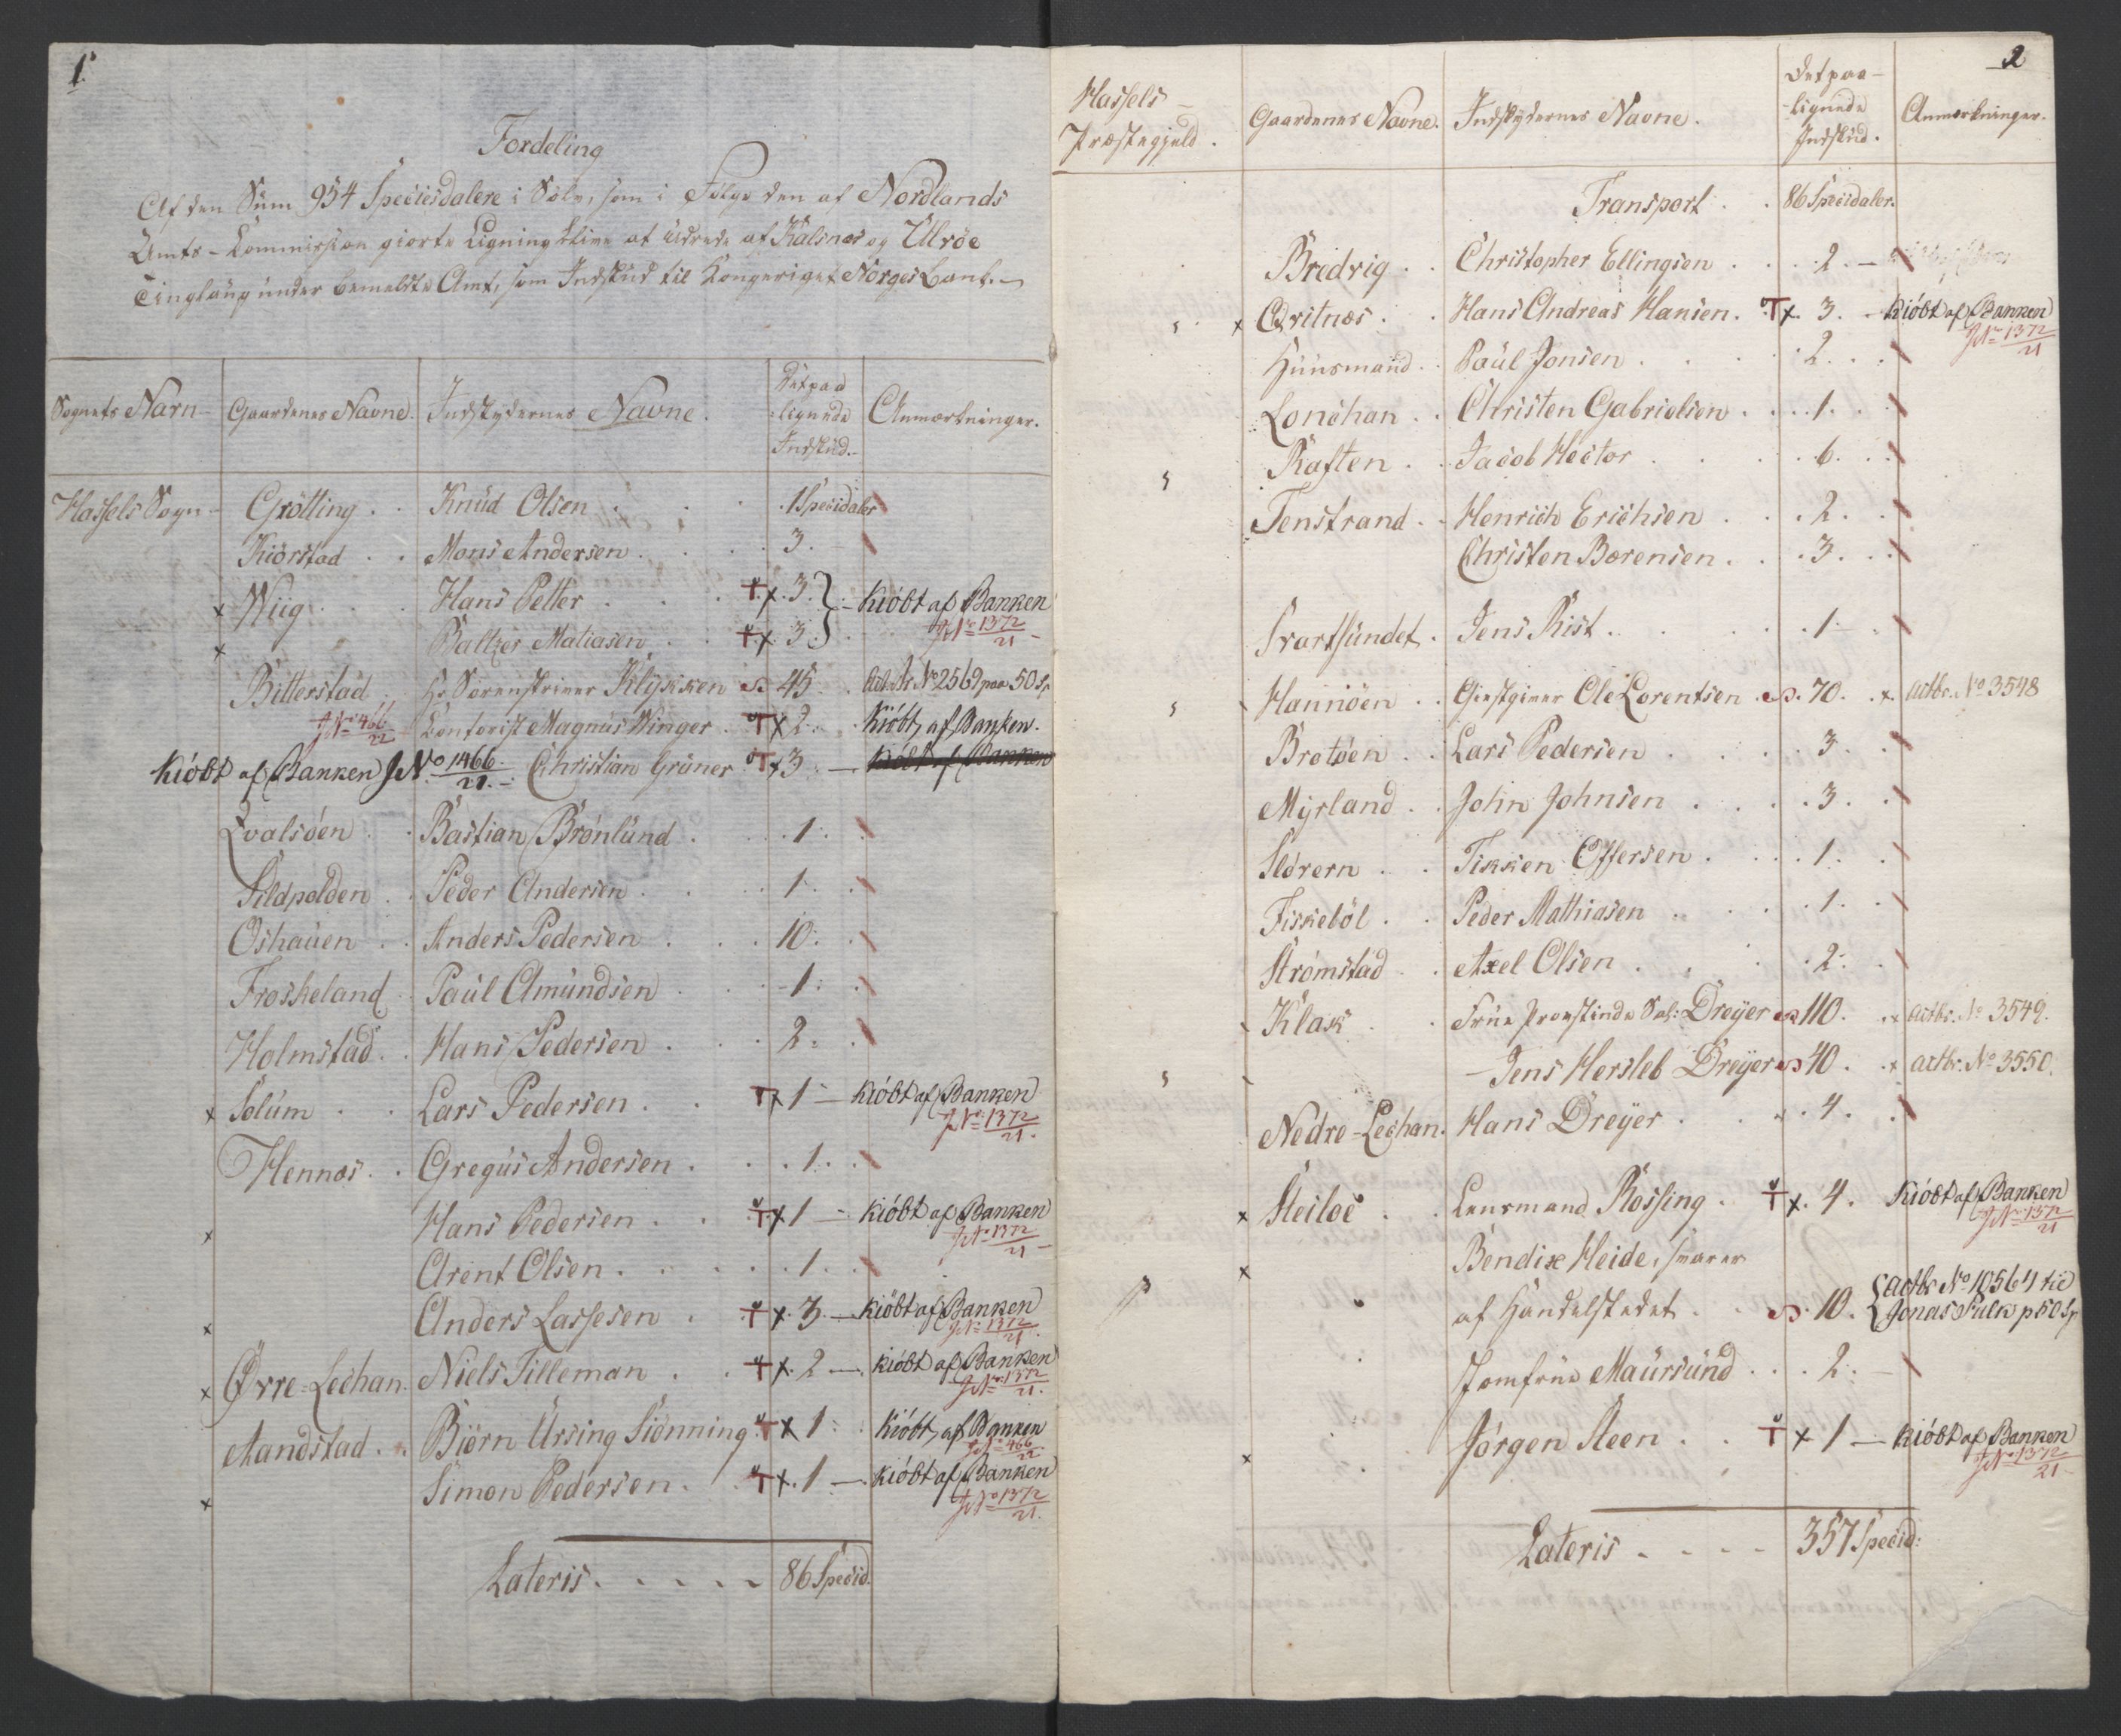 1.
Fordeling
Af den Sum 954 Speciesdalere i Sølv, som i Følge den af Nordlands
Amts-Commission giorte Ligning blive at udrede af Kalsnæs og Ulvöe
Tinglaug under bemeldte Amt, som Indskud til Kongeriget Norges Bank.
Sognets Navn
Gaardenes Navne.
Indskydernes Navne.
Det paa
lignede
Indskud.
Anmærkninger.
Hassels Sogn - Grötting . . Knud Olsen . . . 1 Specidaler
Kiörstad . . Mons Andersen . . . 3.
x Wiig . . . Hans Petter . . . T x. 3. } - Kiöbt af Banken
JNo 1372/21
x Baltzer Matiasen . . T x 3
Bitterstad . Hr Sorenskriver Klykken 45. Actbr No 2569 paa 50 Sp
JNo 466/22 Contorist Magnus Winger . T x 2. . Kiöbt af Banken.
Kiöbt af Banken JNo 1466/21. - Christian Grüner T x 3 . — Kiöbt af Banken
Qvalsöen . . Bastian Brönlund . . . 1. .
Sildpolden . . Peder Andersen . . . 1. .
Oshauen . . Anders Pedersen . . . 10. .
Froskeland . Paul Amundsen . . . 1. .
Holmstad . . Hans Pedersen . . . 2. .
x Solum . . Lars Pedersen . . T x 1 — Kiöbt af Banken
JNo 1372/21.
Hennæs . . Gregus Andersen . . . 1. .
x Hans Pedersen . . T x 1 — Kiöbt af Banken
JNo 1372/21
Arent Olsen . . . . . 1. .
x Anders Lassesen . . T x. 3. — Kiöbt af Banken
JNo 1372/21.
x Øvre-Lechan. Niels Tilleman . . T x. 2 —. Kiöbt af Banken
JNo 1372/21.
Aandstad . . Biörn Ursing Siönning T x 1. . Kiöbt af Banken
JNo 466/22
x Simon Pedersen . . T x. 1 —. Kiöbt af Banken
JNo 1372/21.
Lateris . . . . . 86 Specid.
2
Hassels
Præstegjeld.
Gaardenes Navne.
Indskydernes Navne.
Det paa-
lignede
Indskud.
Anmærkninger.
Transport . . 86 Specidaler.
Bredvig . . Christopher Ellingsen . . . . 2. —
x Qvitnæs . . Hans Andreas Hansen . T x. 3. - Kiöbt af Banken
JNo 1372/21
Huusmand . . Paul Jonsen . . . . 2. . .
Lonchan . . Christen Gabrielsen . . . . 1. . .
Raften . . Jacob Hector . . . . 6. . .
Tenstrand . . Henrich Erichsen . . . 2. . .
Christen Børensen . . . 3. . .
Svartsundet . Jens Rist . . . . 1. .
Hannöen . . Giestgiver Ole Lorentsen . 70. . x. Actbr. No 3548
Brotöen . . Lars Pedersen . . . . 3. .
Myrland . . John Johnsen . . . . 3. .
Slörern . . Tikken Offersen . . . . 1. .
Fiskeböl . . Peder Mathiasen . . . . 1. .
Strömstad . . Axel Olsen . . . . 2. .
Klask . . Frue Provstinde Sal: Dreyer 110. . x Actbr. No 3549.
- Jens Hersleb Dreyer 40 . . x Actbr. No 3550.
Nedre-Lechan. Hans Dreyer . . . . 4. .
x Steiloe . . Lensmand Rossing . T x. 4. Kiöbt af Banken
JNo 1372/21
x Bendix Heide, svarer
af Handelstedet . . 10. { Actbr No 10564 til
Jonas Falk p 50 Sp
Jomfrue Maursund . . . 2. -
x Jörgen Steen . . T x 1 — Kiöbt af Banken
JNo 1372/21
Lateris . . . . 357 Specid: